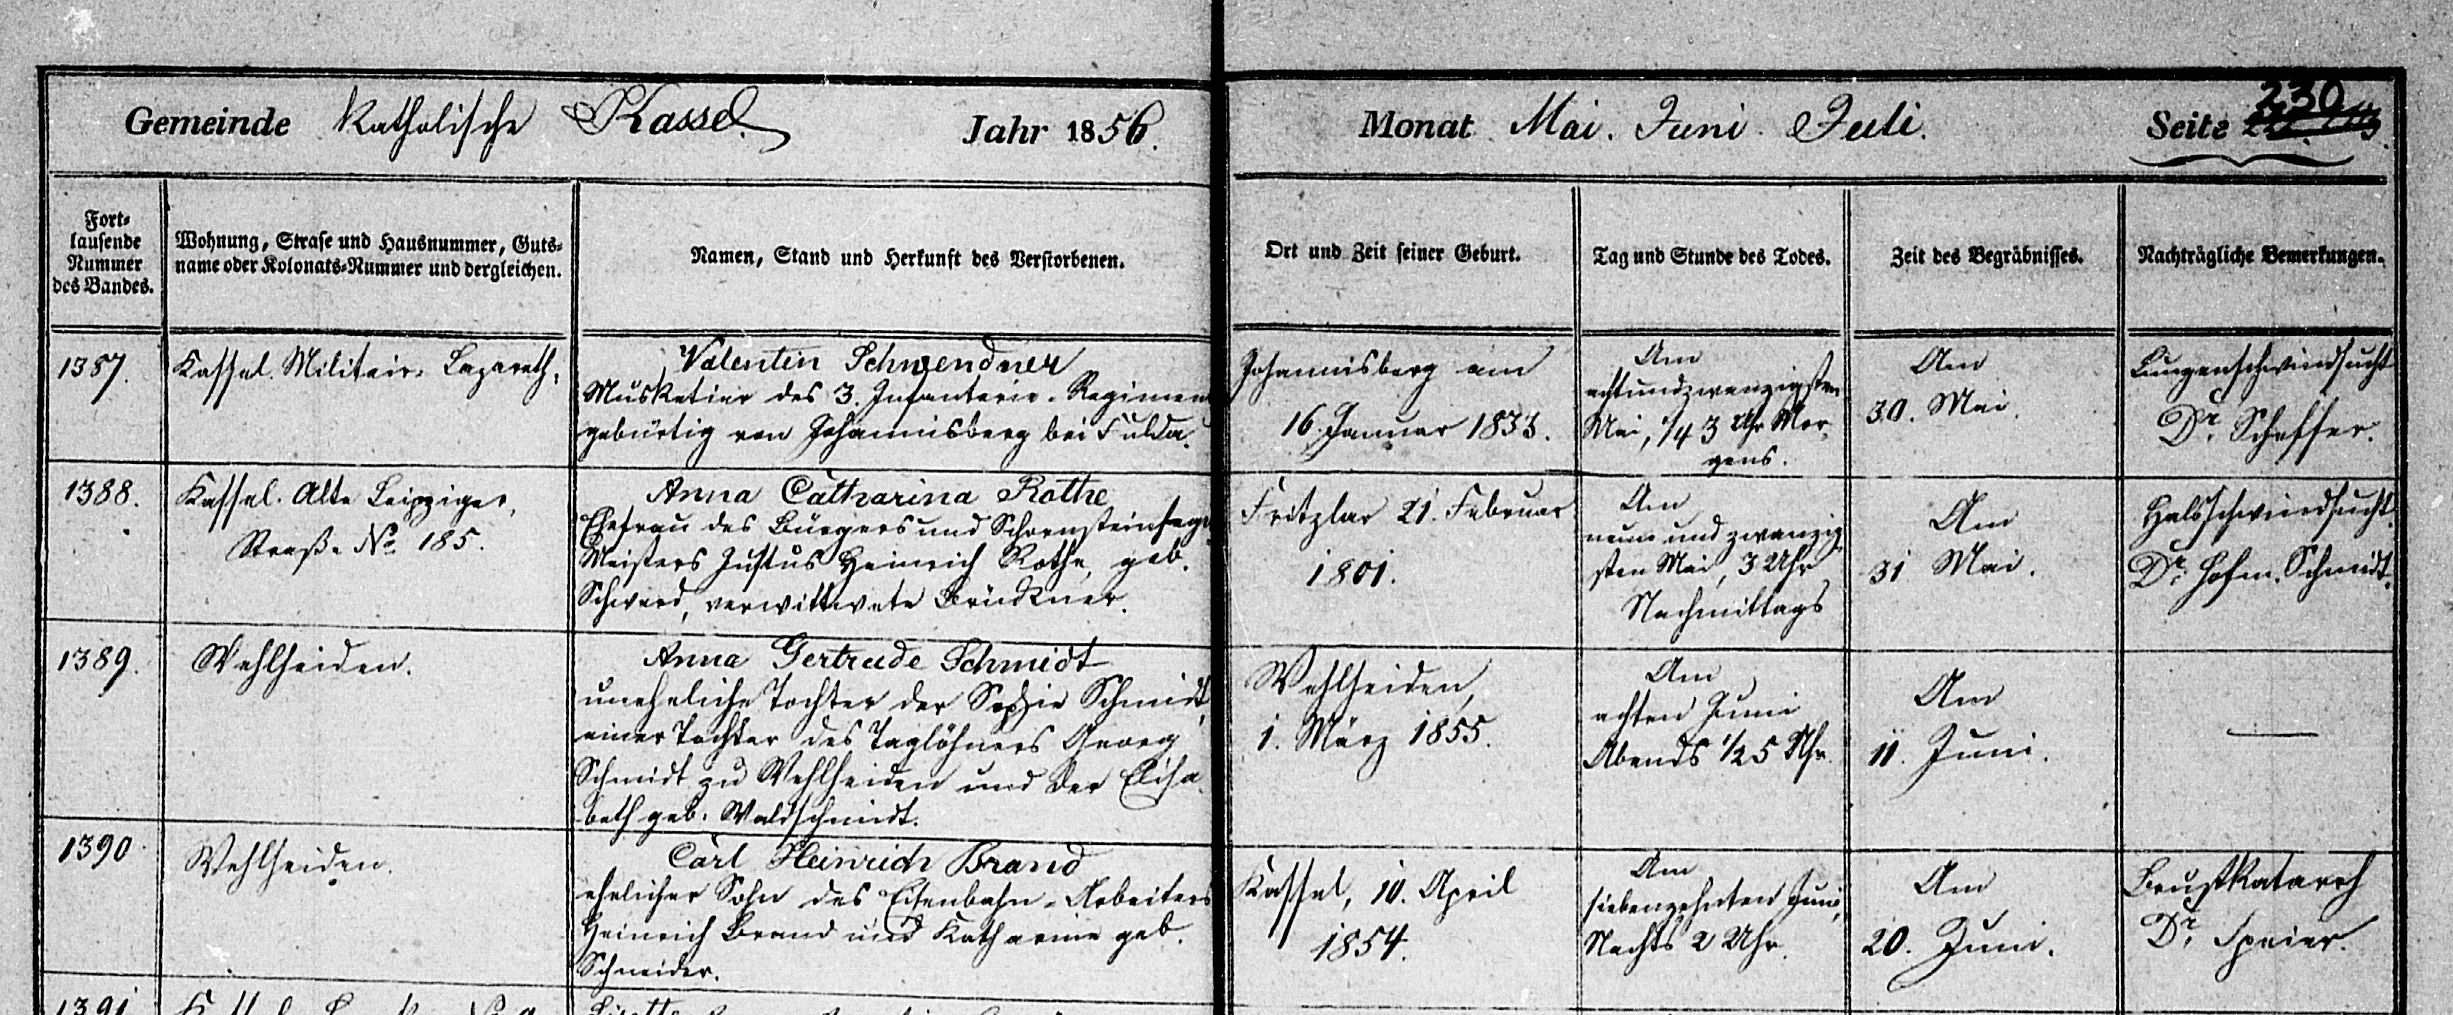 Gemeinde Katholische Kassel. Jahr 1856.
Monat Mai. Juni. Juli. Seite 230
Fort-
laufende
Nummer
des Bandes.
Wohnung, Straße und Hausnummer, Guts-
name oder Kolonats-Nummer und dergleichen.
Namen, Stand und Herkunft des Verstorbenen.
Ort und Zeit seiner Geburt.
Tag und Stunde des Todes.
Zeit des Begräbnisses.
Nachträgliche Bemerkungen.
1387.
Kassel. Militair-Lazareth.
Valentin Schwendner
Musketier des 3. Infanterie-Regimen
gebürtig von Johannisberg bei Fulda.
Johannisberg am
16. Januar 1833.
Am
achtundzwanzigsten
Mai, 1/4 3 Uhr Mor-
gens.
Am
30. Mai.
Lungenschwindsucht
Dr. Scheffer.
1388.
Kassel. Alte Leipziger
Straße No. 185.
Anna Catharina Rothe
Ehefrau des Bürgers und Schornsteinfeger
Meisters Justus Heinrich Rothe, geb.
verwittwete Brückner.
Fritzlar 21. Februar
1801.
Am
neun und zwanzig
sten Mai, 3 Uhr
Nachmittags
Am
31 Mai.
Halsschwindsucht.
Dr. Hofm. Schmidt.
1389.
Wehlheiden.
Anna Gertrude Schmidt
uneheliche Tochter der Sophie Schmidt,
einer Tochter des Taglöhners Georg
Schmidt zu Wehlheiden und der Elisa-
beth geb. Waldschmidt.
Wehlheiden,
1. März 1855.
Am
achten Juni
Abends 1/2 5 Uhr.
Am
11. Juni.
1390
Wehlheiden.
Carl Heinrich Brand
ehelicher Sohn des Eisenbahn-Arbeiters
Heinrich Brand und Katharine geb.
Schneider.
Kassel, 10. April
1854.
Am
siebenzehnten Juni,
Nachts 2 Uhr.
Am
20. Juni.
Brustkatarrh
Dr. Speier.
1391